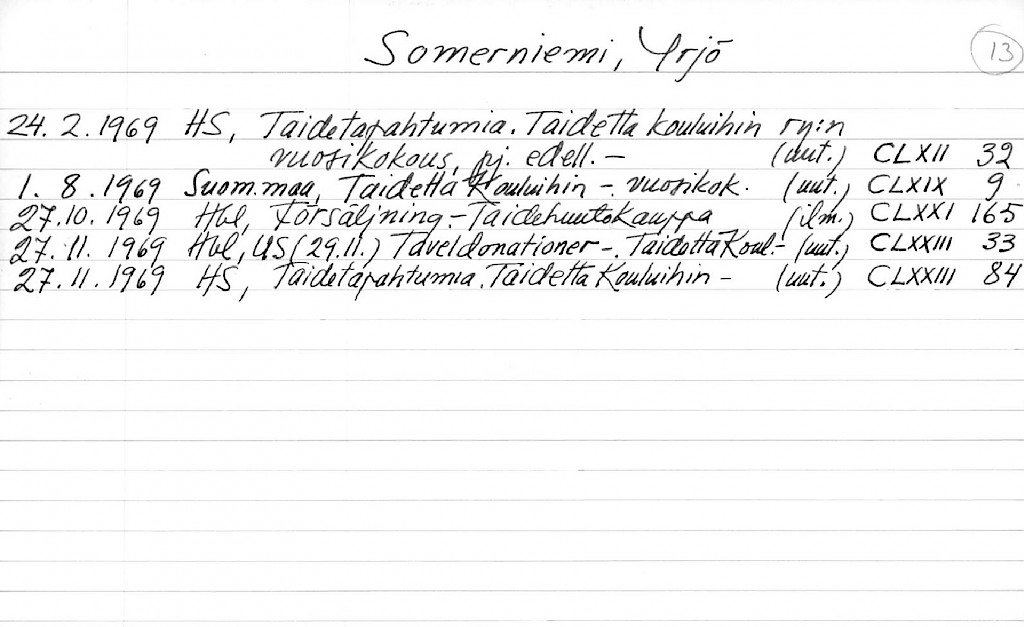 Somerniemi, Yrjö 13
24. 2. 1969 HS, Taidetapahtumia. Taidetta kouluihin ry:n
vuosikokous, pj. edell. – (uut.) CLXII 32
1. 8. 1969 Suom.maa, Taidetta Kouluihin – vuosikok. (uut.) CLXIX 9
27.10. 1969 Hbl, Försäljning – Taidehuutokauppa (ilm.) CLXXI 165
27. 11. 1969 Hbl, US (29.11.) Taveldonationer – Taidetta Koul. – (uut.) CLXXIII 33
27. 11. 1969 HS, Taidetapahtumia. Taidetta Kouluihin – (uut.) CLXXIII 84